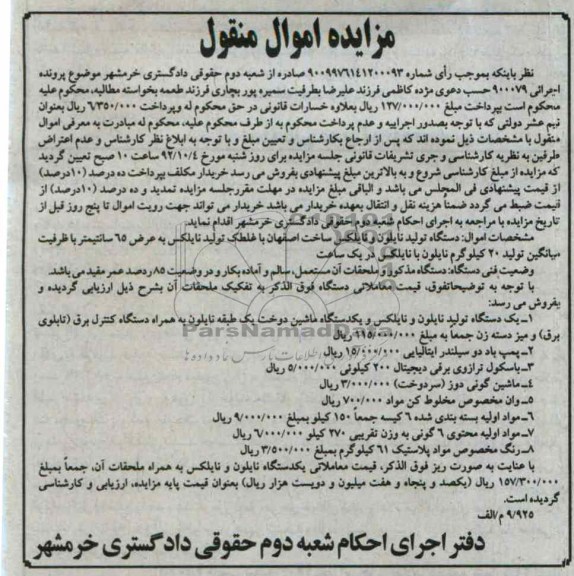 مزایده اموال منقول
نظر باینکه بموجب رأی شماره ۹۰۰۹۹۷۶۱۴۱۲۰۰۰۹۳ صادره از شعبه دوم حقوقی دادگستری خرمشهر موضوع پرونده
اجرائی ۹۰۰۰۷۹ حسب دعوی مژده کاظمی فرزند علیرضا بطرفیت سمیره پور بچاری فرزند طعمه بخواسته مطالبه، محکوم علیه
محکوم است بپرداخت مبلغ ۱۲۷/۰۰۰/۰۰۰ ریال بعلاوه خسارات قانونی در حق محکوم له وپرداخت ۶/۳۵۰/۰۰۰ ریال بعنوان
نیم عشر دولتی که با توجه بصدور اجراییه و عدم پرداخت محکوم به از طرف محکوم علیه، محکوم له مبادرت به معرفی اموال
منقول با مشخصات ذیل نموده اند که پس از ارجاع بکارشناس و تعیین مبلغ و با توجه به ابلاغ نظر کارشناس و عدم اعتراض
طرفین به نظریه کارشناسی و جری تشریفات قانونی جلسه مزایده برای روز شنبه مورخ ۹۲/۱۰/۴ ساعت ۱۰ صبح تعیین گردید
که مزایده از مبلغ کارشناسی شروع و به بالاترین مبلغ پیشنهادی بفروش می رسد خریدار مکلف بپرداخت ده درصد (۱۰درصد)
از قیمت پیشنهادی فی المجلس می باشد و الباقی مبلغ مزایده در مهلت مقررجلسه مزایده تمدید و ده درصد (۱۰درصد) از
قیمت ضبط می گردد ضمناً هزینه نقل و انتقال بعهده خریدار می باشد خریدار می تواند جهت رویت اموال تا پنج روز قبل از
تاریخ مزایده با مراجعه به اجرای احکام شعبه دوم حقوقی دادگستری خرمشهر اقدام نماید.
مشخصات اموال: دستگاه تولید نایلون و نایلکس ساخت اصفهان با غلطک تولید نایلکس به عرض ۶۵ سانتیمتر با ظرفیت
میانگین تولید ۲۰ کیلوگرم نایلون یا نایلکس در یک ساعت
وضعیت فنی دستگاه: دستگاه مذکور و ملحقات آن مستعمل، سالم و آماده بکار و در وضعیت ۸۵ درصد عمر مفید می باشد.
با توجه به توضیحاتفوق، قیمت معاملاتی دستگاه فوق الذکر به تفکیک ملحقات آن بشرح ذیل ارزیابی گردیده و
بفروش می رسد:
۱ـ یک دستگاه تولید نایلون و نایلکس و یکدستگاه ماشین دوخت یک طبقه نایلون به همراه دستگاه کنترل برق (تابلوی
برق) و میز دسته زن جمعاً به مبلغ ۱۱۵/۰۰۰/۰۰۰ ریال
۲ـ پمپ باد دو سیلندر ایتالیایی ۱۵/۰۰۰/۰۰۰ ریال
۳ـ باسکول ترازوی برقی دیجیتال ۲۰۰ کیلوئی ۵/۰۰۰/۰۰۰ ریال
۴ـ ماشین گونی دوز (سردوخت) ۳/۰۰۰/۰۰۰ ریال
۵ـ وان مخصوص مخلوط کن مواد ۷۰۰/۰۰۰ ریال
۶ـ مواد اولیه بسته بندی شده ۶ کیسه جمعاً ۱۵۰ کیلو بمبلغ ۹/۰۰۰/۰۰۰ ریال
۷ـ مواد اولیه محتوی ۶ گونی به وزن تقریبی ۲۷۰ کیلو ۶/۰۰۰/۰۰۰ ریال
۸ـ رنگ مخصوص مواد پلاستیک ۶۱ کیلوگرم بمبلغ ۳/۵۰۰/۰۰۰ ریال
با عنایت به صورت ریز فوق الذکر، قیمت معاملاتی یکدستگاه نایلون و نایلکس به همراه ملحقات آن، جمعاً بمبلغ
۱۵۷/۳۰۰/۰۰۰ ریال (یکصد و پنجاه و هفت میلیون و دویست هزار ریال) بعنوان قیمت پایه مزایده، ارزیابی و کارشناسی
گردیده است.
۹/۹۲۵ م/الف
دفتر اجرای احکام شعبه دوم حقوقی دادگستری خرمشهر
ParsNamadData